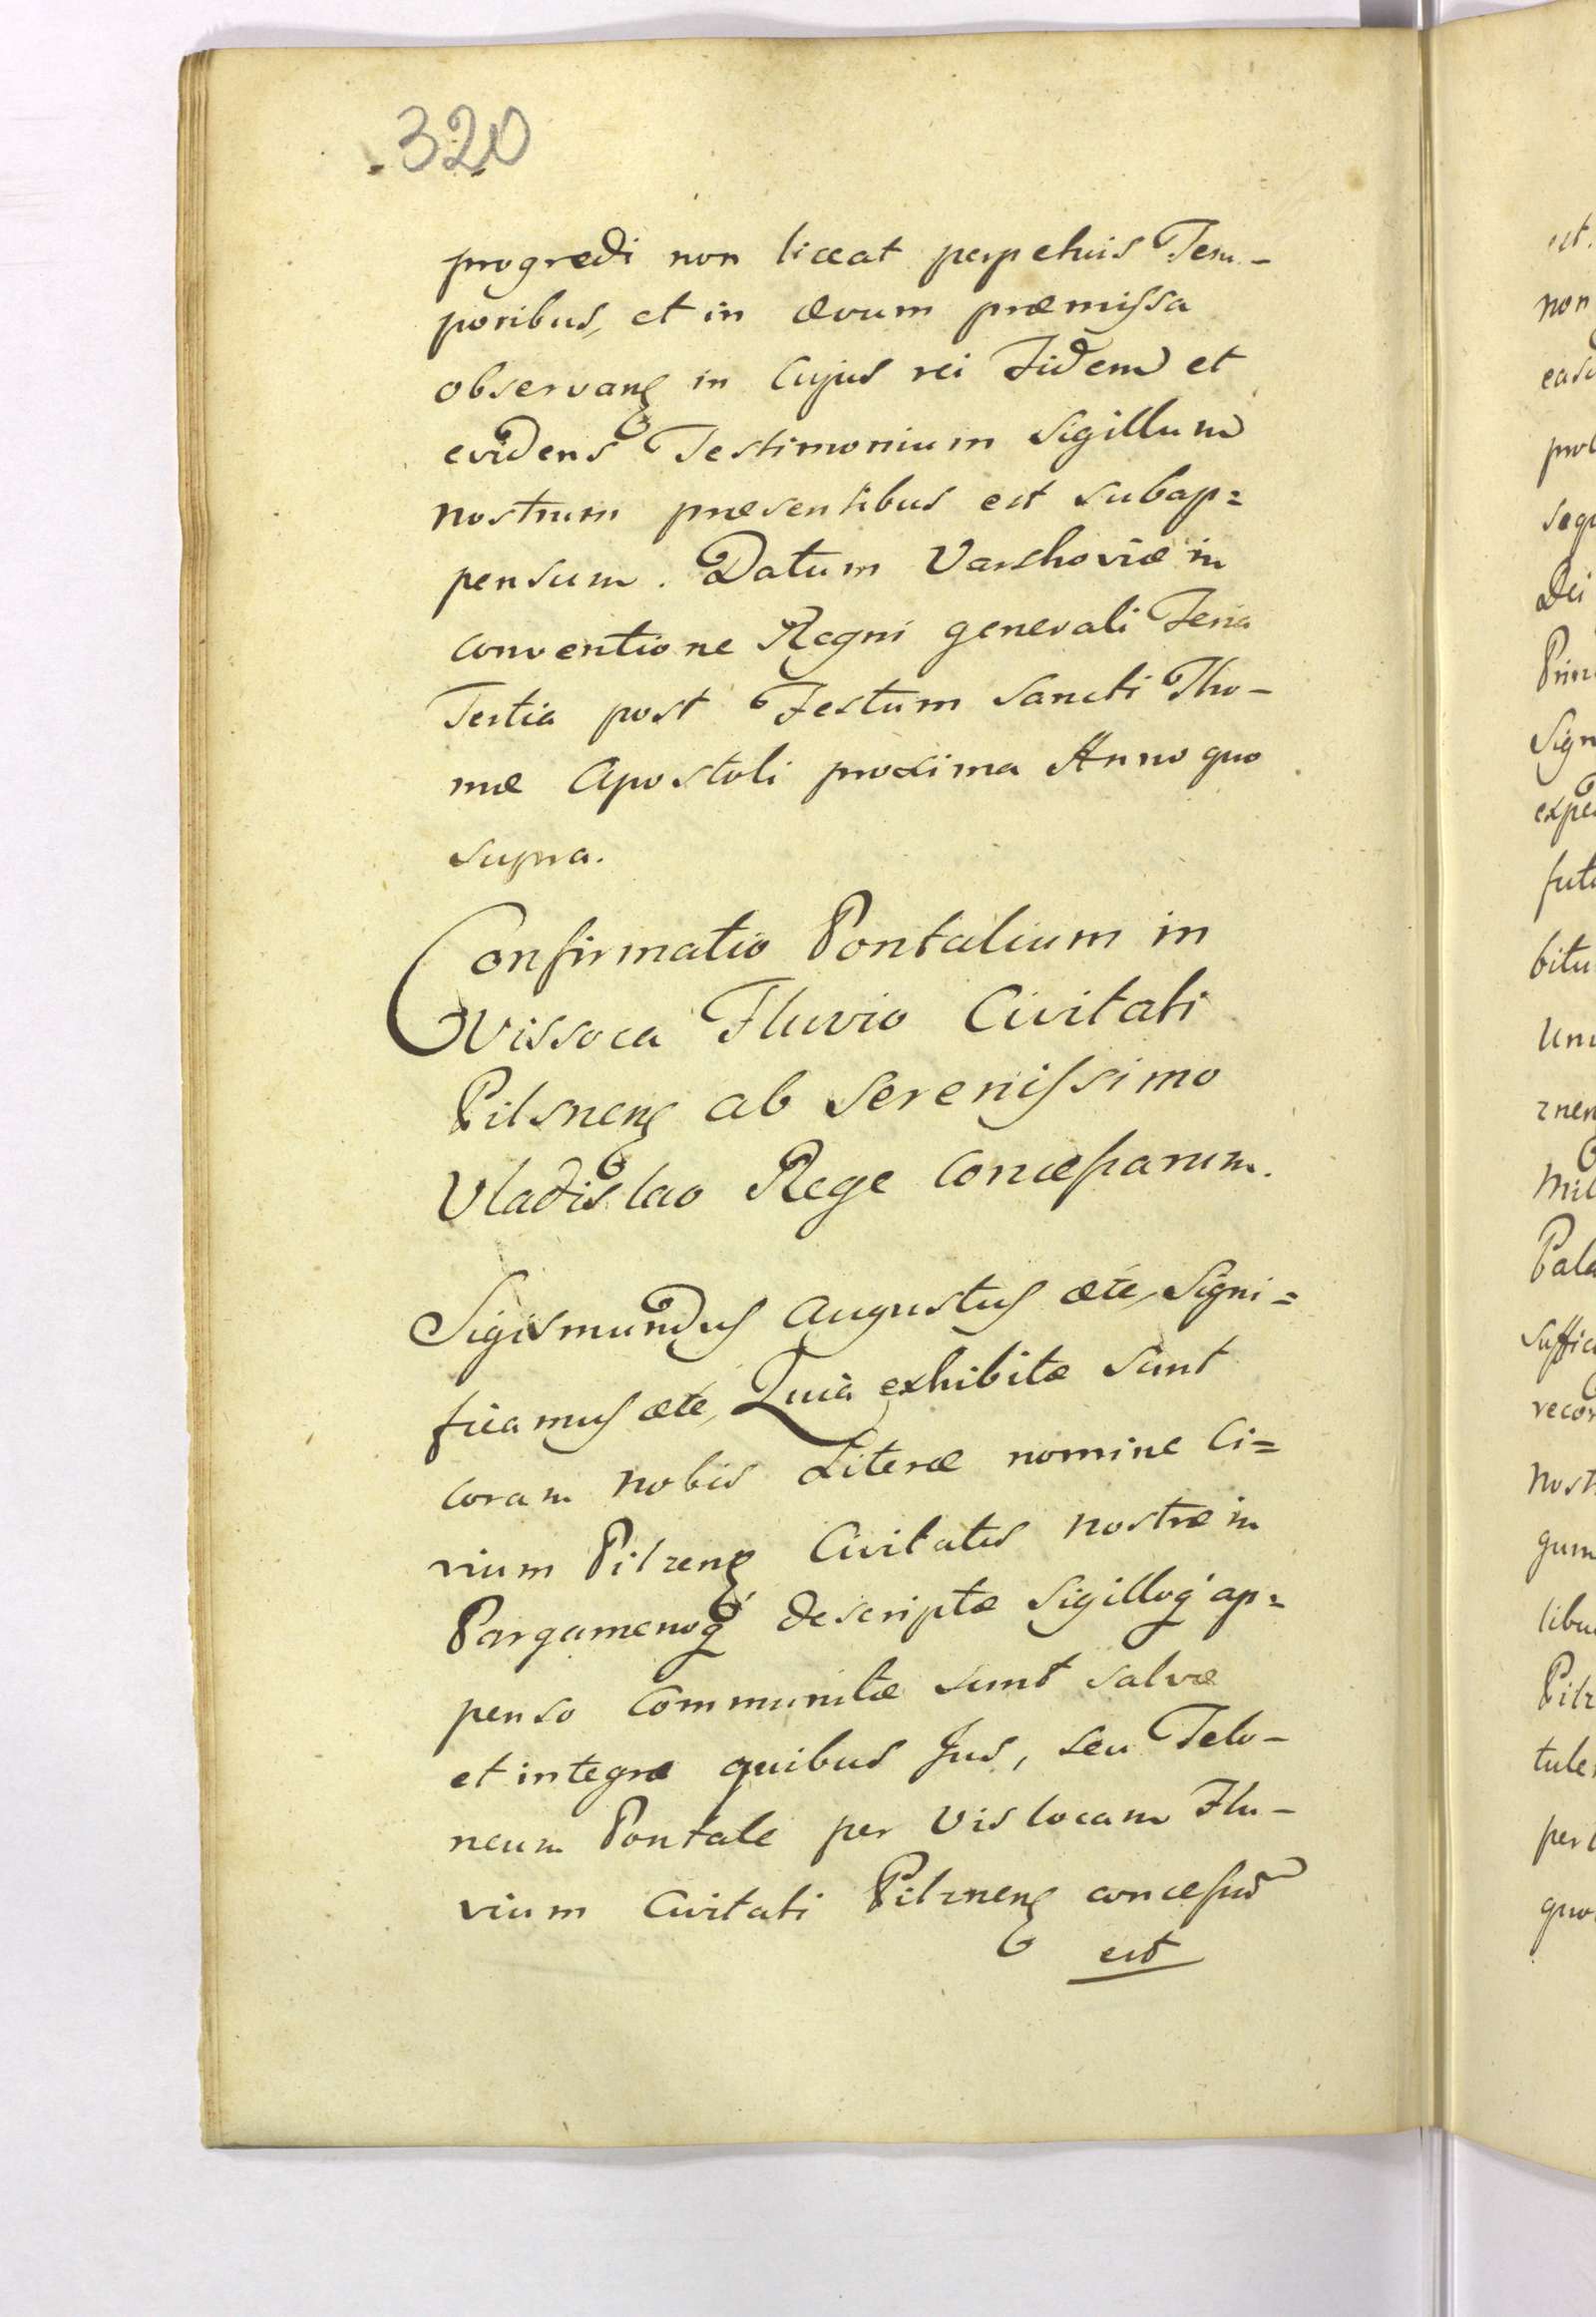 320
progredi non liceat perpetuis Tem-
poribus, et in ævum præmissa
observanꝫ in Cujus rei Fidem et
evidens Testimonium Sigillum
nostrum præsentibus est subap=
pensum. Datum Varshoviæ in
conventione Regni generali Feria
Tertia post Festum Sancti Tho-
mæ Apostoli proxima Anno quo
supra.
Confirmatio Pontalium in
Vissoca Fluvio Civitati
Pilsnenꝫ ab Serenissimo
Vladislao Rege Concessarum.
Sigismundus Augustus ætc, Signi=
ficamus ætc, Quia exhibitæ sunt
coram nobis Literæ nomine Ci=
vium Pilzenꝫ Civitatis nostræ in
Pargamenoq́ descriptæ Sigilloq́ ap=
penso communitæ sunt salvæ
et integræ quibus Jus, seu Telo-
neum Pontale per Vislocam Flu-
vium Civitati Pilznenꝫ concessũ
est
est.
non
pro
sequ
Dei
Prin
Sign
expe
futu
bitu
Uni
znen
Mil
Pala
suffic
recor
nost
gum
libu
Pilz
tule
per
quo